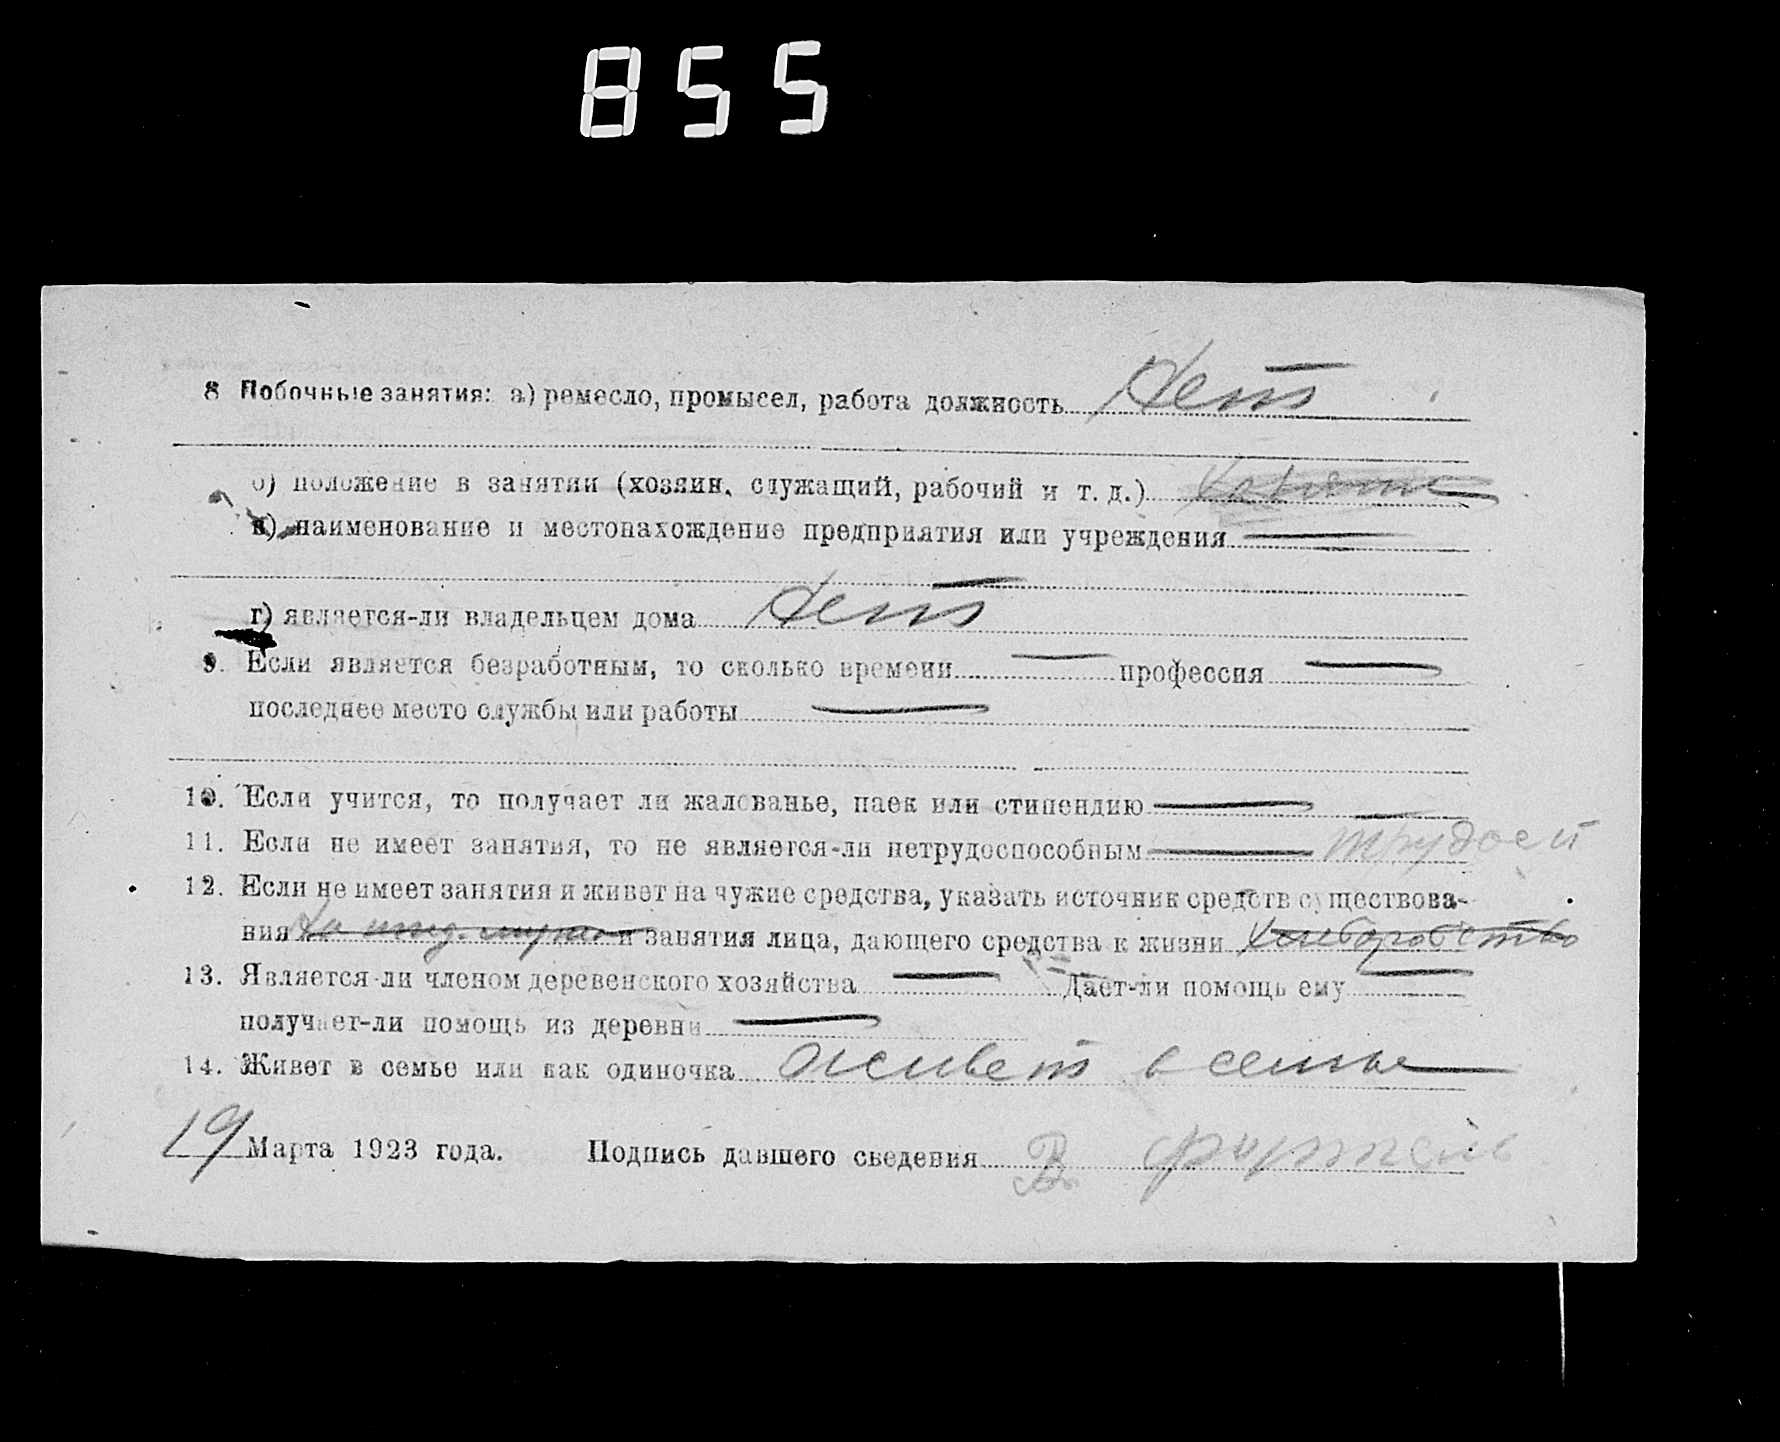 855
8 Побочные занятия: а) ремесло, промысел, работа должность Нет
б) положение в занятии (хозяин, служащий, рабочий и т. д.)
в) наименование и местонахождение предприятия или учреждения
г) является-ли владельцем дома Нет
9. Если является безработным, то сколько времени профессия
последнее место службы или работы
10. Если учится, то получает ли жалованье, паек или стипендию
11. Если не имеет занятия, то не является-ли нетрудоспособным трудосп
12. Если не имеет занятия и живет на чужие средства, указать источник средств существова-
ния и занятия лица, дающего средства к жизни хлеборобство
13. Является-ли членом деревенского хозяйства Дает-ли помощь ему
получает-ли помощь из деревни
14. Живет в семье или как одиночка живет в семье
19 Марта 1923 года. Подпись давшего сведения В